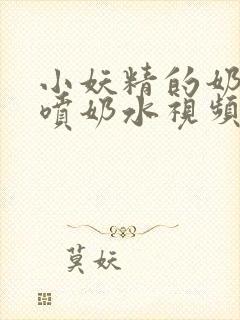 小妖精的奶
噴奶水視頻
莫妖